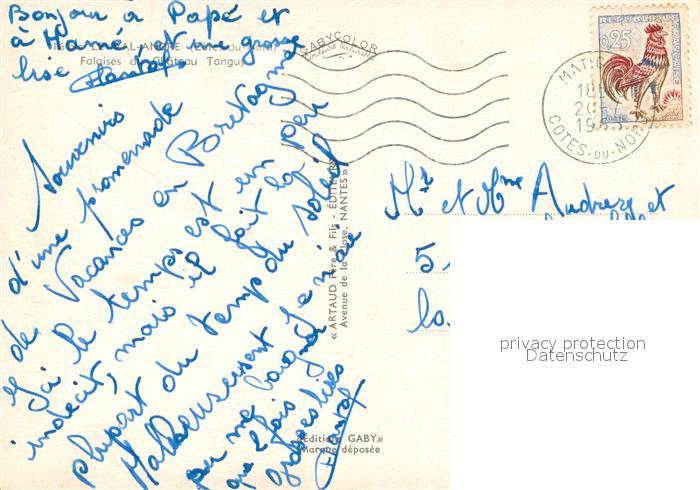 Bonjour à Papé et
à Mamé, et une grosse
bise
Falaises du Château Tanguy
GABYCOLOR
0,25
MATIG
18
20
19
COTES-DU-NORD
Souvenirs
d'une promenade
de Vacances en Bretagne
Ici le temps est un peu
indécit, mais il fait la
plupart du temps du soleil
Malheureusement je n'ai
pu me baigner
que 2 fois
grosses bises
« ARTAUD Père & Fils - ÉDITEURS
Avenue de la Close, NANTES »
«Editions GABY»
Marque déposée
Mr et Mme Audrezy et
5
privacy protection
Datenschutz